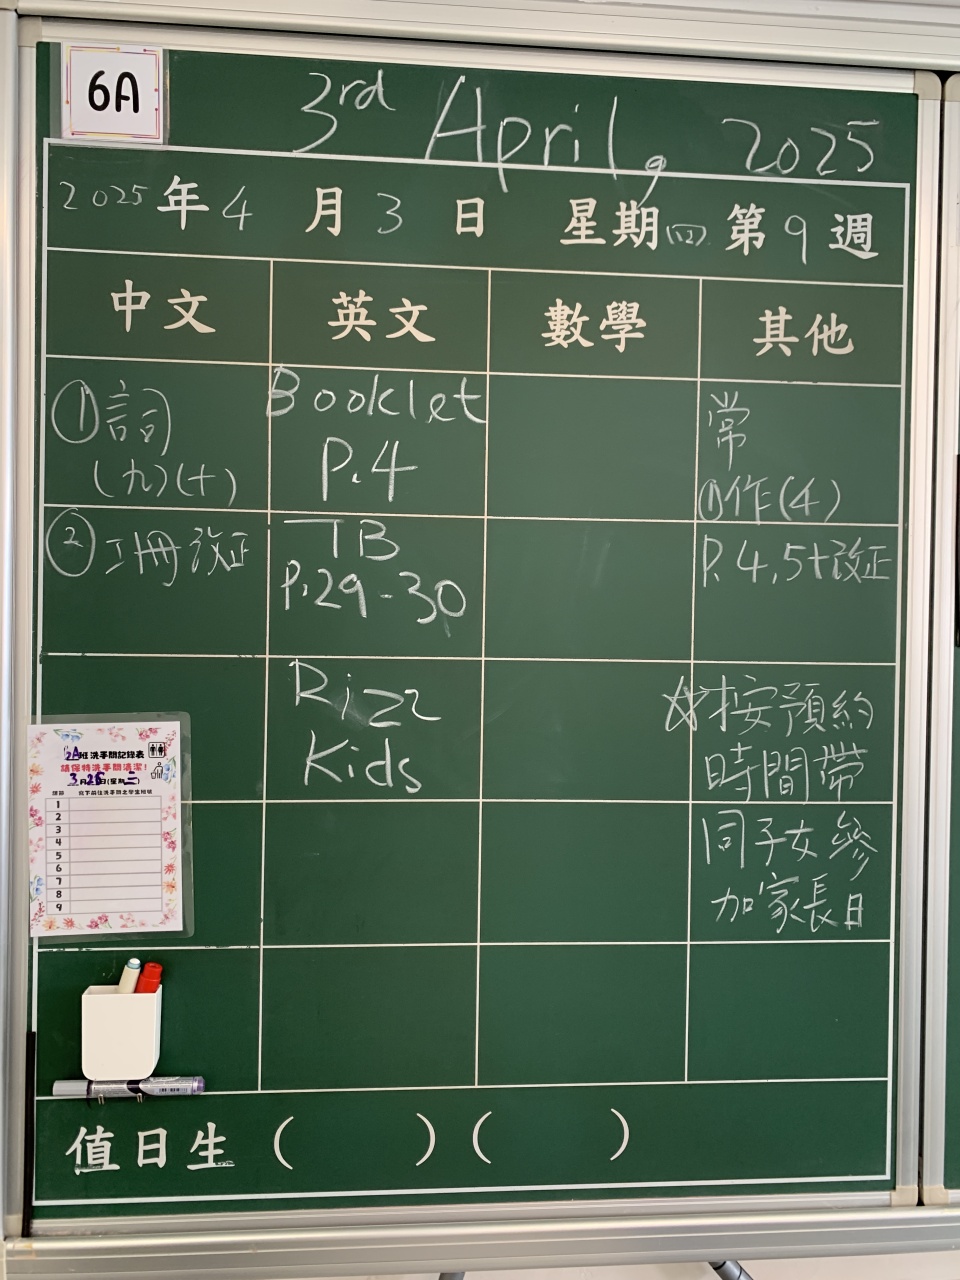 6A
3rd April, 2025
2025年4月3日 星期四 第9週
中文 英文 數學 其他
①詞
(九)(十)
②工冊改正
Booklet
P.4
TB
P.29-30
Rizz
Kids
常
①作(4)
P.4,5+改正
☆按預約
時間帶
同子女參
加家長日
2A班洗手間記錄表
請保持洗手間清潔!
3月26日(星期三)
1
2
3
4
5
6
7
8
9
值日生( )( )